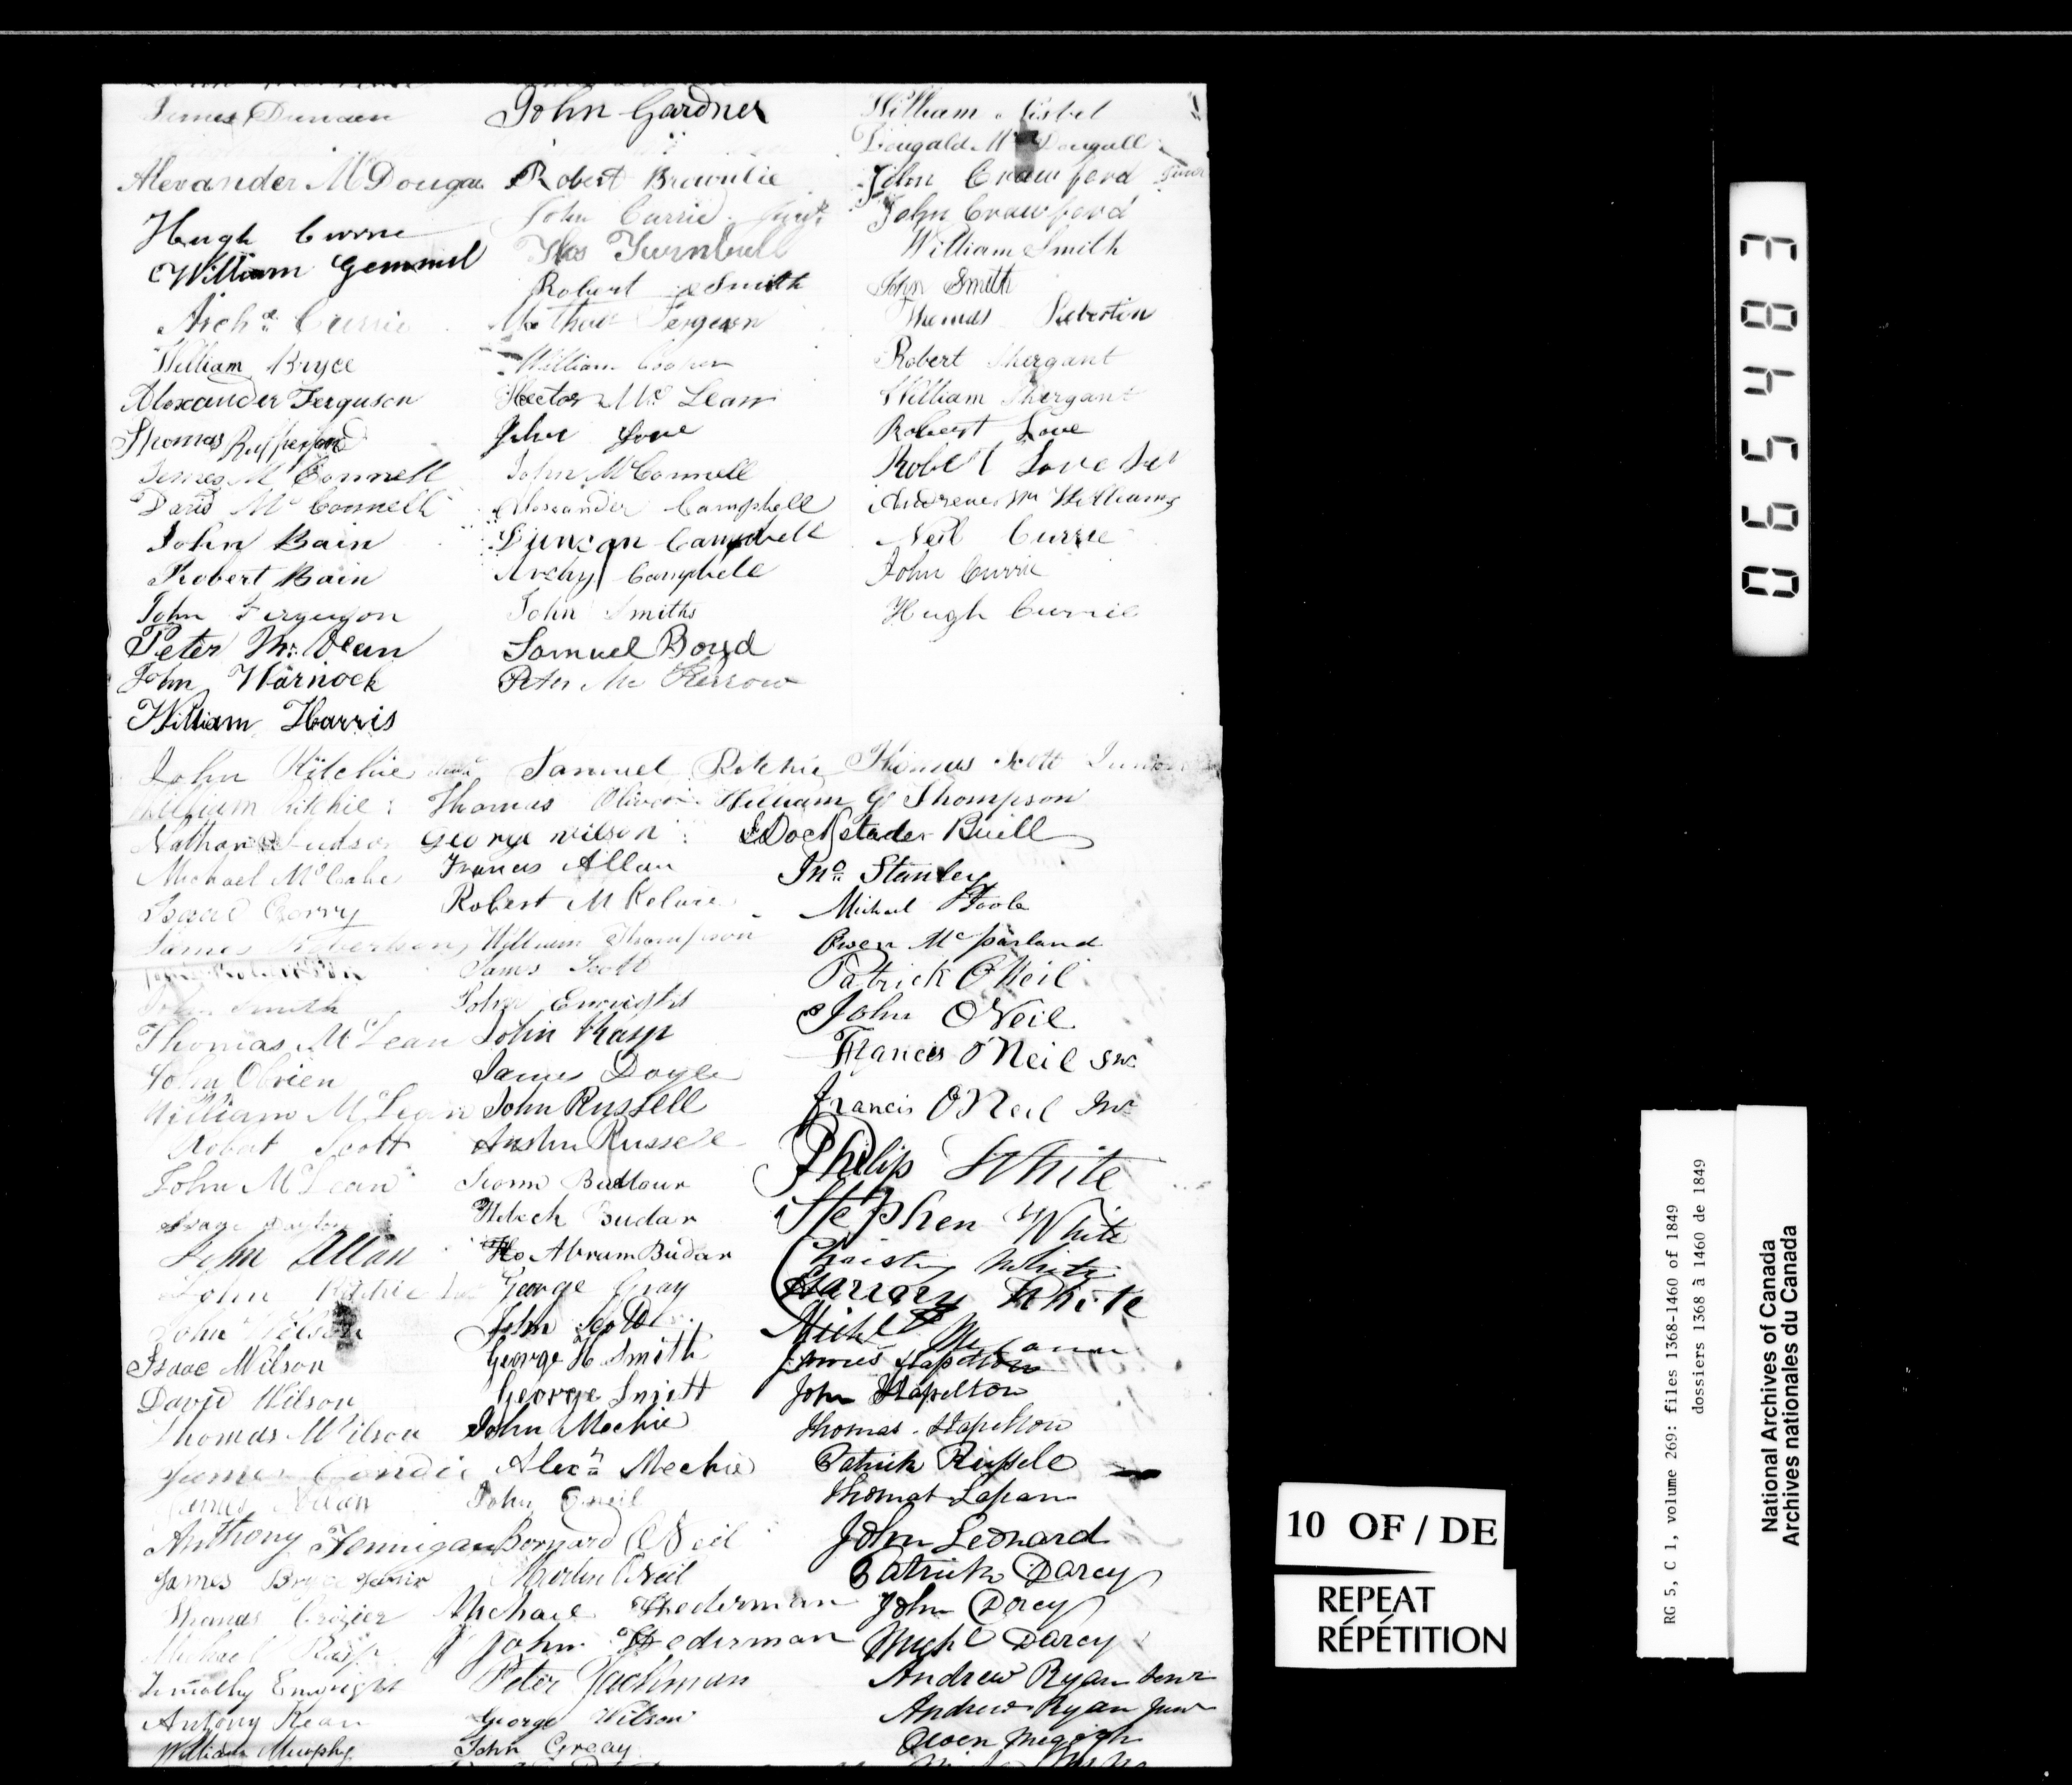 James Duncan John Gardner William Nisbet
Dougald McDougall
Alexander McDouga Robert Brownlie John Crawford Junr
Hugh Currie John Currie Junr John Crawford
William Gemmil Thos Turnbull William Smith
Robert Smith John Smith
Archd Currie Mathew Ferguson Thomas Liberton
William Bryce William Cooper Robert Shergant
Alexander Ferguson Hector Mc Lean William Shergant
Thomas John Love Robert Love
James McConnell John McConnell Robert Love
David McConnell Alexander Campbell Andrew McWilliams
John Bain Duncan Campbell Neil Currie
Robert Bain Archy Campbell John Currie
John Ferguson John Smith Hugh Currie
Peter Mc.Vean Samuel Boyd
John Warnock Peter Mc Kerrow
William Harris
John Ritchie Samuel Ritchie Thomas Scott Junior
William Ritchie Thomas Oliver William G Thompson
Nathan Judson George Wilson Dockstader Buell
Michael McCabe Francis Allan Jno Stanley
Isaac Corry Robert McKelvie Michael Toole
James Robertson William Thompson Owen McParland
James Scott Patrick O'Neil
John Smith John Enright John O'Neil
Thomas McLean John Karp Francis O'Neil Snr
John Obrien James Doyle
William McLean John Russell Francis O'Neil Jnr
Robert Scott Russell Philip White
John McLean
Budar Stephen White
John Allan Abram Budar Christy White
John Ritchie George Gray Harvey White
John Wilson John Scott Michl
Isaac Wilson George H Smith James Stapelton
David Wilson George Smitt John Stapelton
Thomas Wilson John Mechie Thomas Stapelton
James Condie Alexr Mechie Patrick Russele
James Allan John Oneil Thomas Lapan
Anthony Fennigan Bornard O'Neil John Leonard
James Bryce Junir Martin O'Neil Patrick Darcy
Thomas Crozier Michael Hederman John Darcy
Michael John Hederman Michl Darcy
Timothy Enright Peter Andrew Ryan Senr
Antony Kean George Wilson Andrew Ryan Junr
William Murphy John Greay Owen Megogh
065483
10 OF / DE
REPEAT
RÉPÉTITION
RG 5, C 1, volume 269: files 1368-1460 of 1849
dossiers 1368 à 1460 de 1849
National Archives of Canada
Archives nationales du Canada